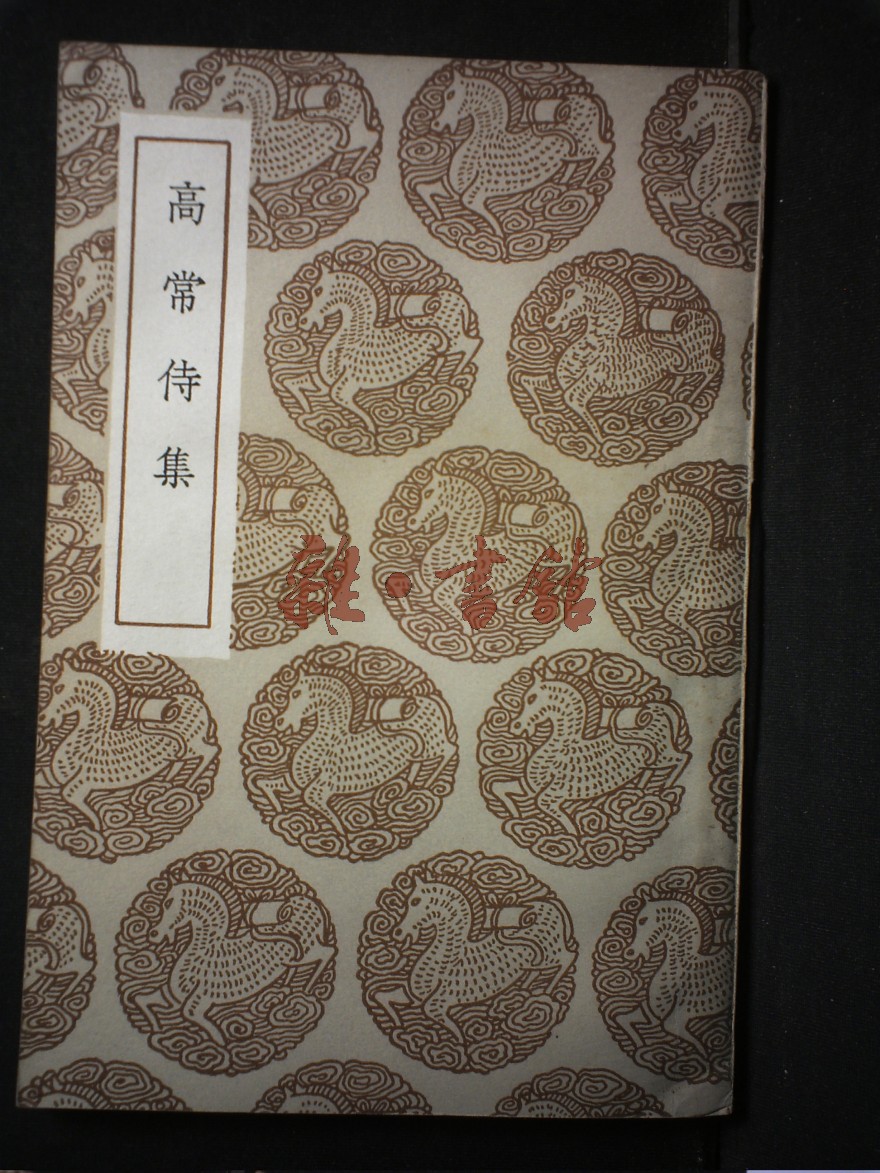 高常侍集
雜·書館